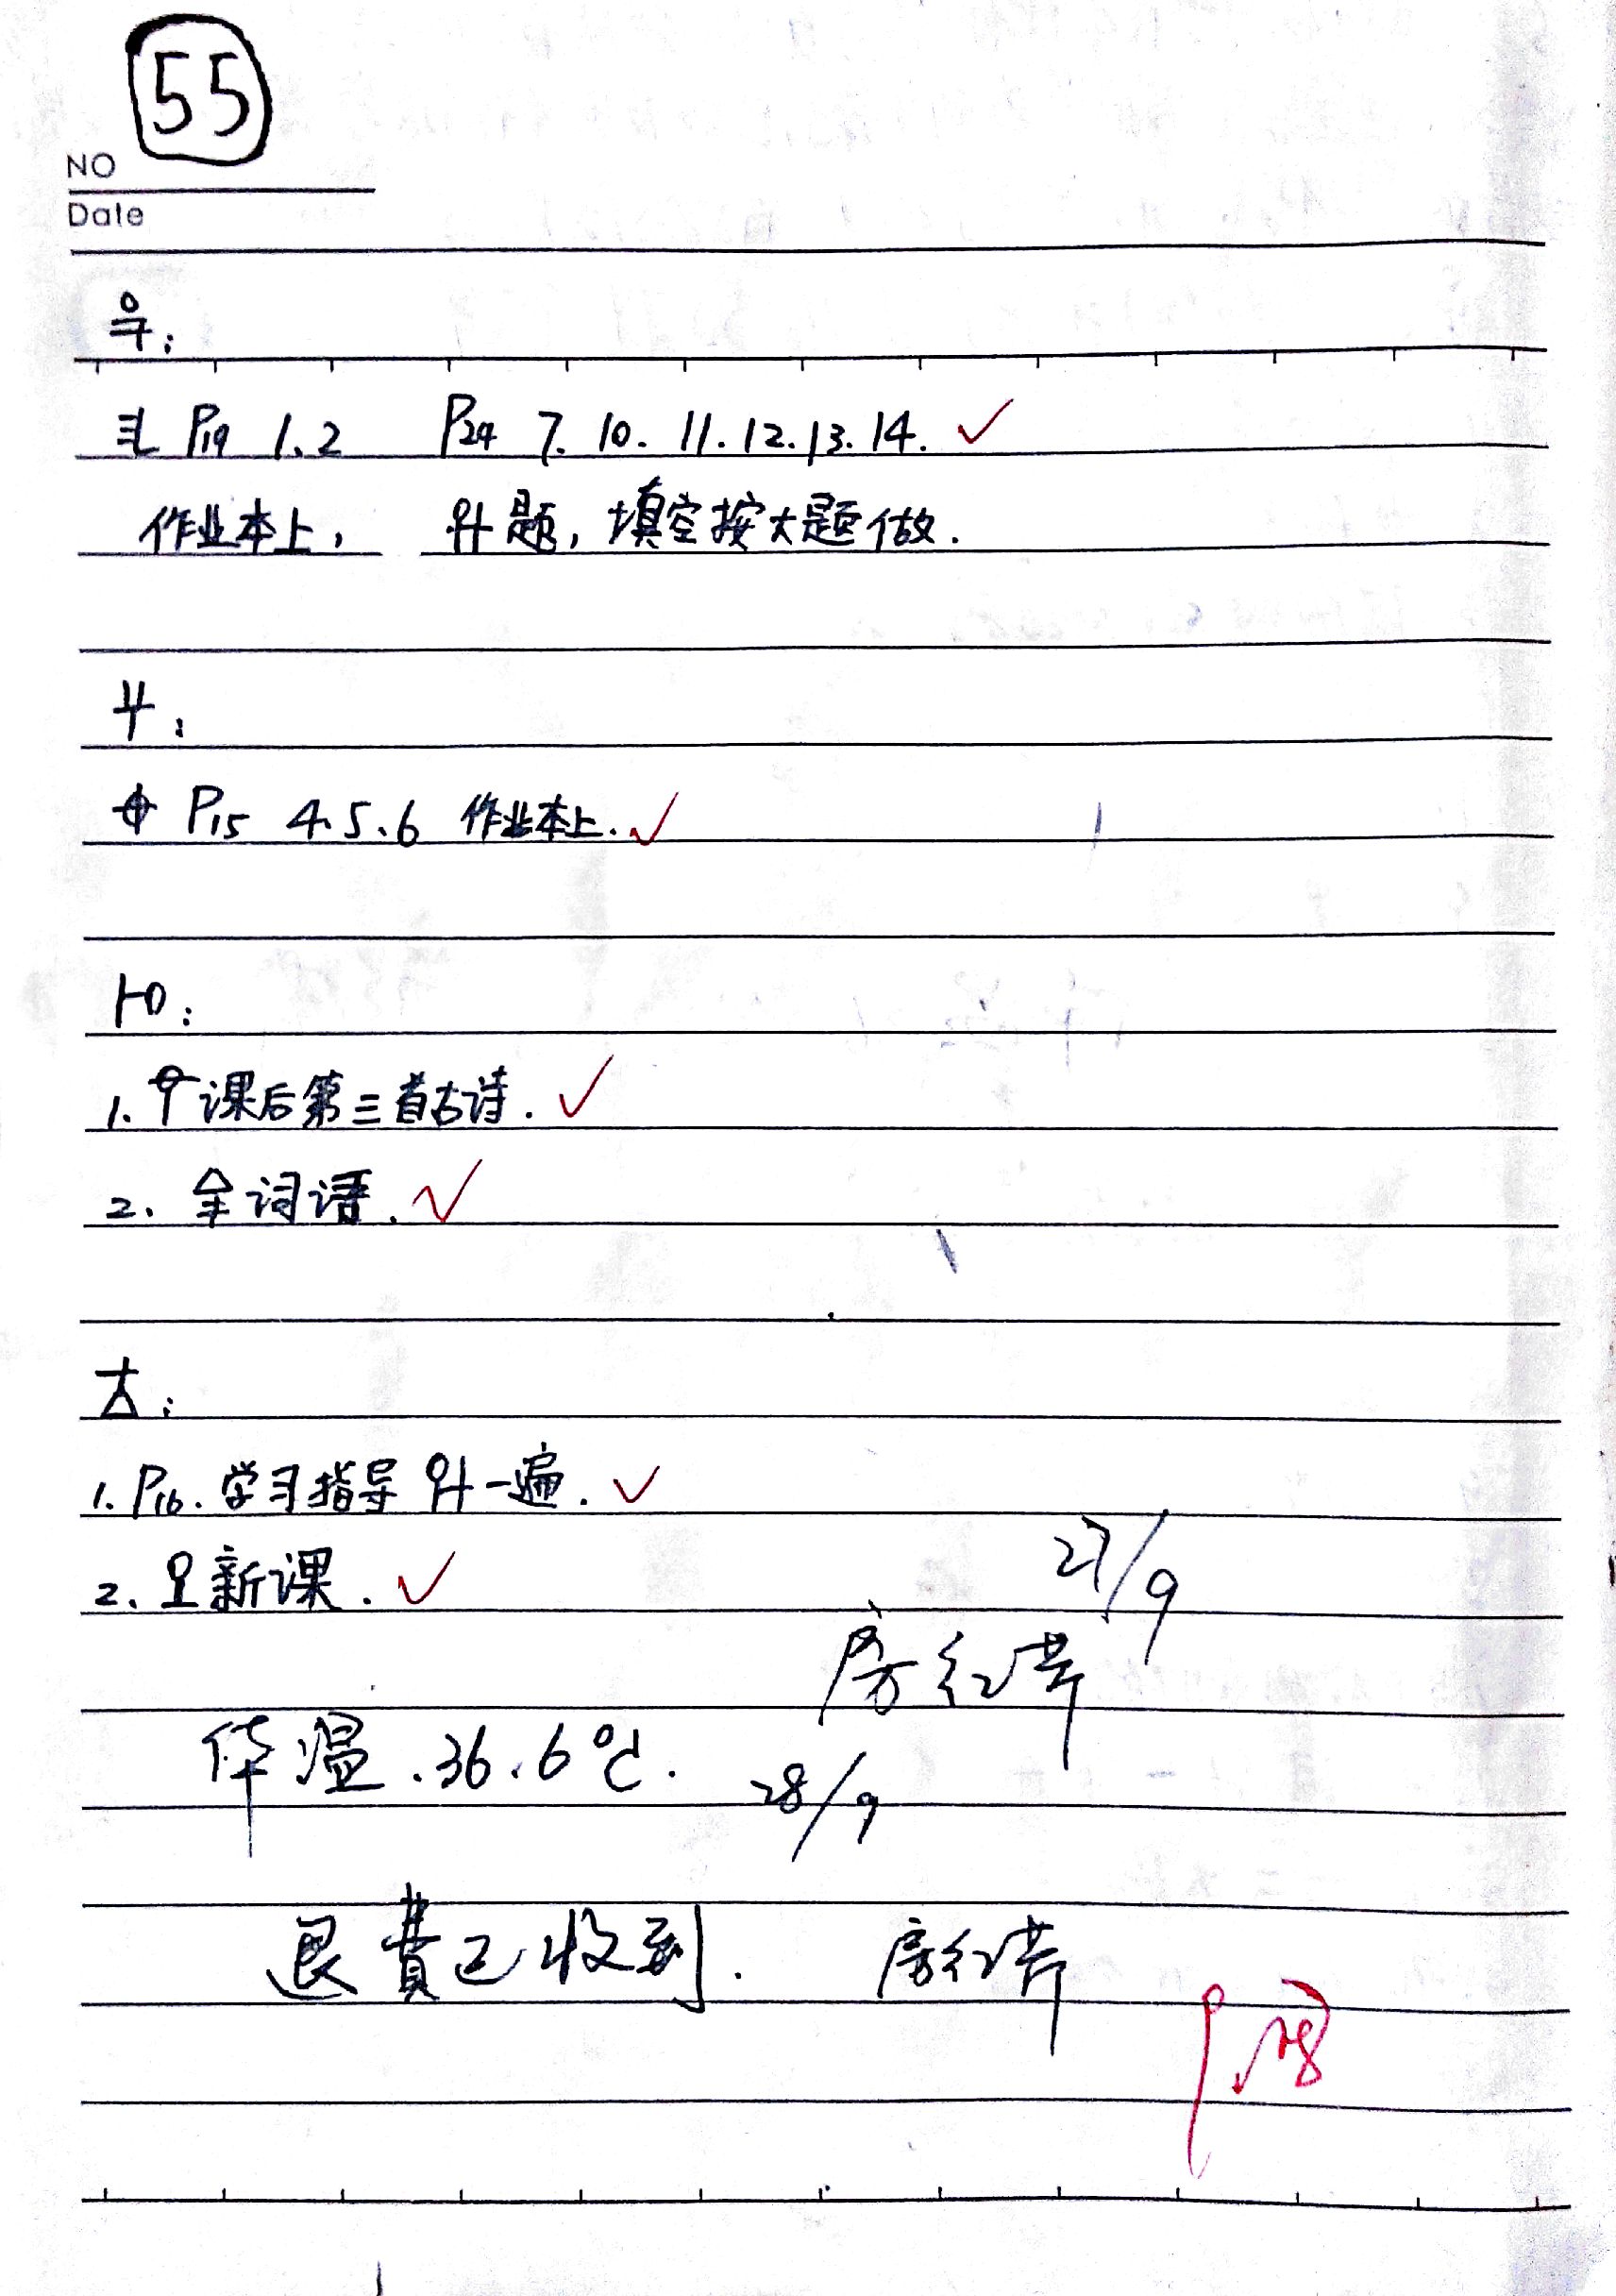 55
NO
Date
P19 1.2 P24 7. 10. 11. 12. 13. 14. ✓
作业本上, 题, 填空按大题做.
P15 4.5.6 作业本上. ✓
1. 课后第三首古诗. ✓
2. 词语. ✓
1. P16. 学习指导 一遍. ✓
2. 新课. ✓
27/9
房红芹
体温.36.6℃. 28/9
退費已收到. 房红芹